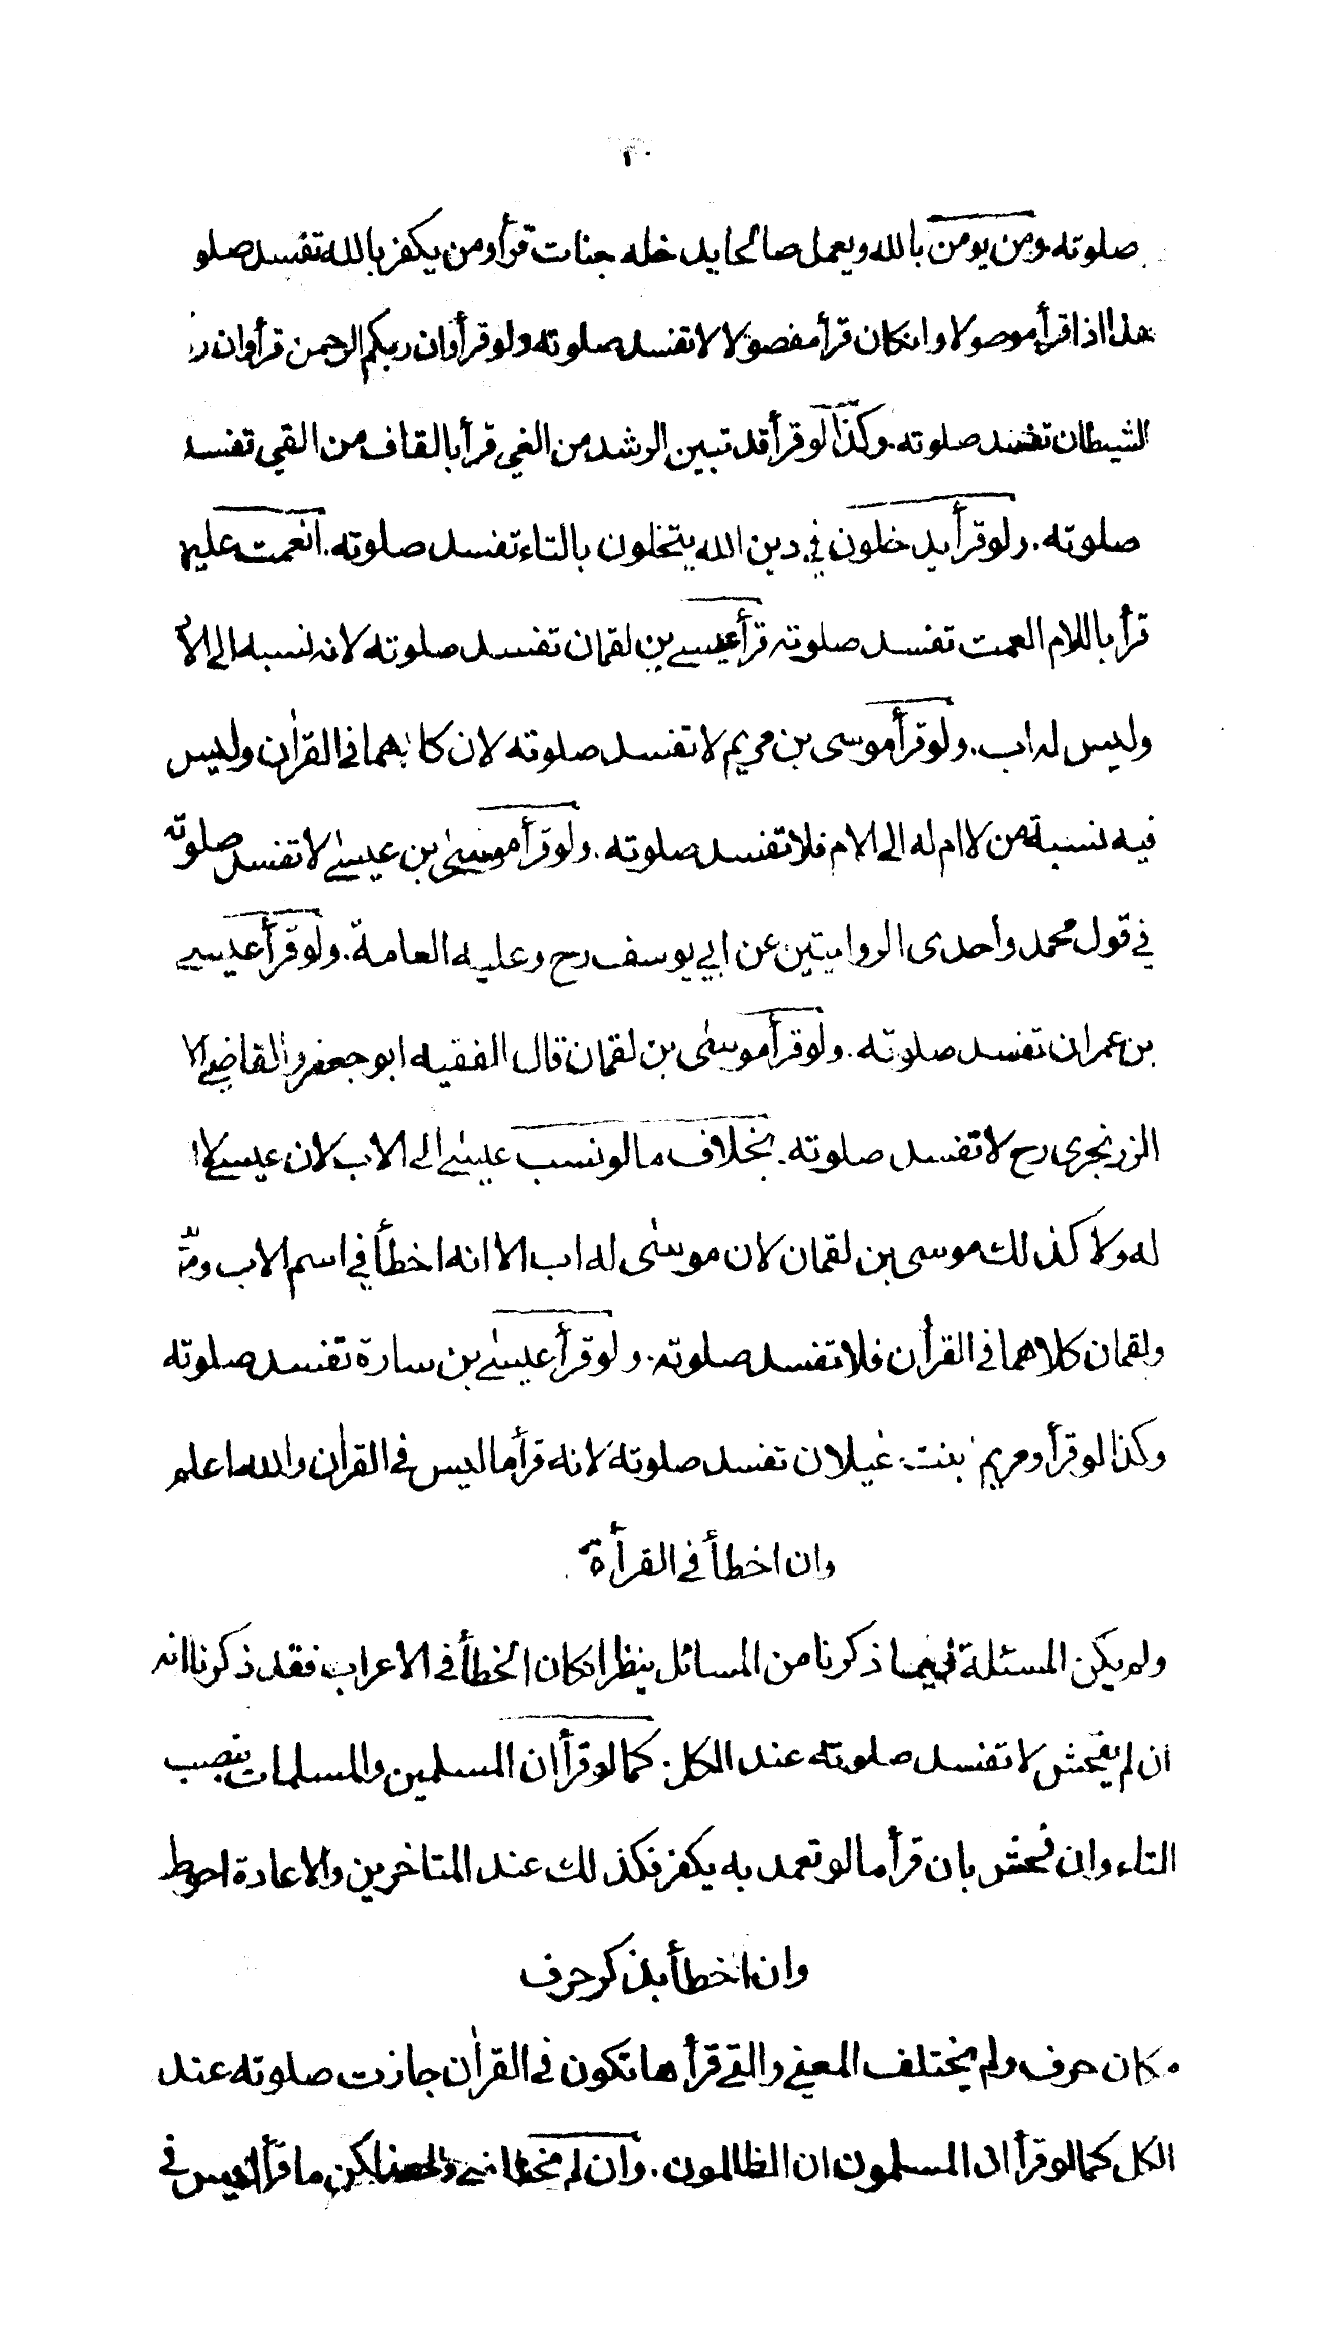 صلوته ومن يومن بالله ويعمل صالحا يدخله جنات قرأ ومن يكفر بالله تفسد صلو
هذا اذا قرأ موصولا وانكان قرأ مفصولا لا تفسد صلوته ولو قرأ وان ربكم الرحمن قرأ وان ر
الشيطان تفسد صلوته. وكذا لو قرأ قد تبين الرشد من الغي قرأ بالقاف من القي تفسد
صلوته. ولو قرأ يدخلون في دين الله يتخلون بالتاء تفسد صلوته. انعمت عليهم
قرأ باللام العمت تفسد صلوته قرأ عيسے بن لقمان تفسد صلوته لانه نسبه الى الا
وليس له اب. ولو قرأ موسى بن مريم لا تفسد صلوته لان كلاهما فى القراٰن وليس
فيه نسبة من لا ام له الى الام فلا تفسد صلوته. ولو قرأ موسىٰ بن عيسےٰ لا تفسد صلوته
في قول محمد واحدى الروايتين عن ابي يوسف رح وعليه العامة. ولو قرأ عيسے
بن عمران تفسد صلوته. ولو قرأ موسىٰ بن لقمان قال الفقيه ابو جعفر والقاضے الا
الزرنجرى رح لا تفسد صلوته. بخلاف ما لو نسب عيسےٰ الى الاب لان عيسے لا ا
له ولا كذلك موسى بن لقمان لان موسىٰ له اب الا انه اخطأ في اسم الاب
ولقمان كلاهما فى القرأن فلا تفسد صلوته. ولو قرأ عيسےٰ بن سارة تفسد صلوته
وكذا لو قرأ ومريم بنت غيلان تفسد صلوته لانه قرأ ما ليس فى القراٰن والله اعلم
وان اخطأ فى القرأة
ولم يكن المسئلة فيما ذكرنا من المسائل ينظر انكان الخطأ فى الاعراب فقد ذكرنا انه
ان لم يفحش لا تفسد صلوته عند الكل. كما لو قرأ ان المسلمين والمسلمات بنصب
التاء وان فحش بان قرأ ما لو تعمد به يكفر فكذلك عند المتاخرين والاعادة احوط
وان اخطأ بذكر حرف
مكان حرف ولم يختلف المعنے والتے قرأها تكون فى القراٰن جازت صلوته عند
الكل كما لو قرأ ان المسلمون ان الظالمون. وان لم لكن ما قرأ ليس فى